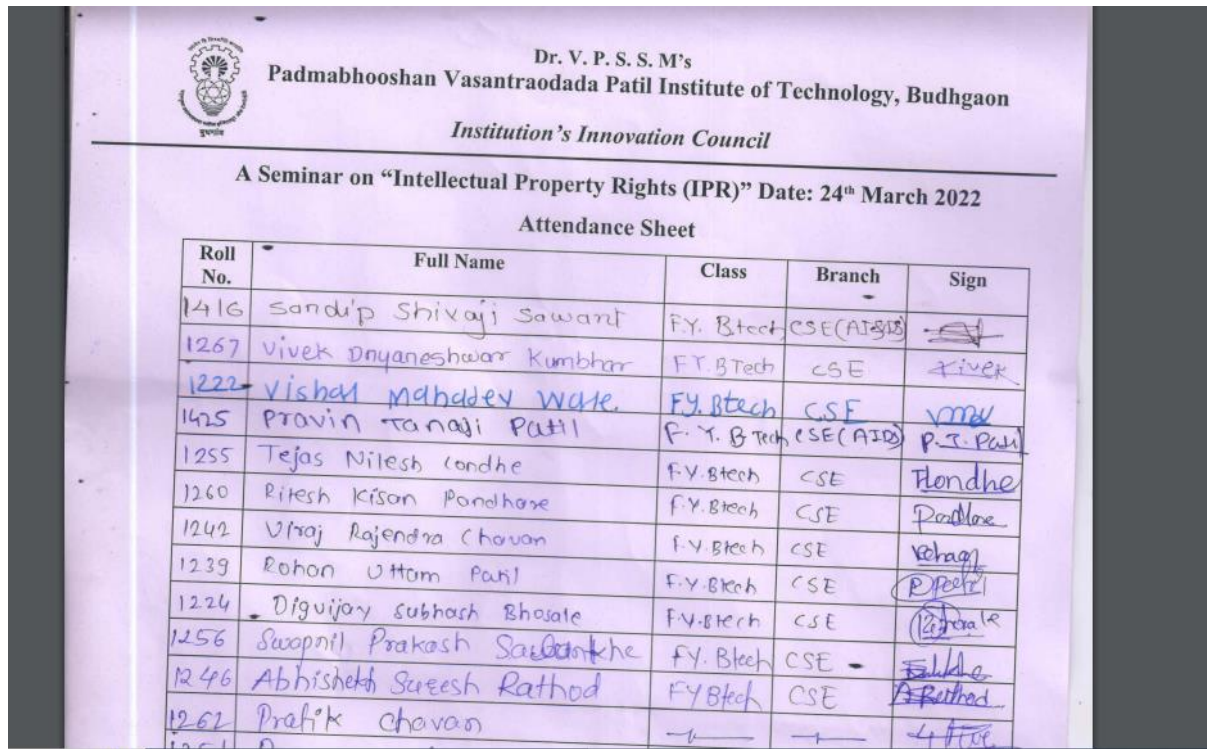 Dr. V. P. S. S. M's
Padmabhooshan Vasantraodada Patil Institute of Technology, Budhgaon
Institution's Innovation Council
बुधगांव
A Seminar on "Intellectual Property Rights (IPR)" Date: 24th March 2022
Attendance Sheet
Roll No. Full Name Class Branch Sign
1416 Sandip Shivaji Sawant F.Y. Btech CSE(AI&DS)
1267 Vivek Dnyaneshwar Kumbhar F.Y.BTech CSE Vivek
1222 Vishal Mahadev Ware. FY. Btech CSE
1425 Pravin Tanaji Patil F. Y. B Tech CSE(AIDS) P.T. Patil
1255 Tejas Nilesh Londhe F.Y.Btech CSE Tlondhe
1260 Ritesh Kisan Pandhare F.Y.Btech CSE
1242 Viraj Rajendra Chavan F.Y.Btech CSE
1239 Rohan Uttam Patil F.Y.Btech CSE
1224 Diguijay Subhash Bhosale F.Y.Btech CSE
1256 Swapnil Prakash FY. Btech CSE
1246 Abhishekh Suresh Rathod FYBtech CSE
1262 Pratik Chavan